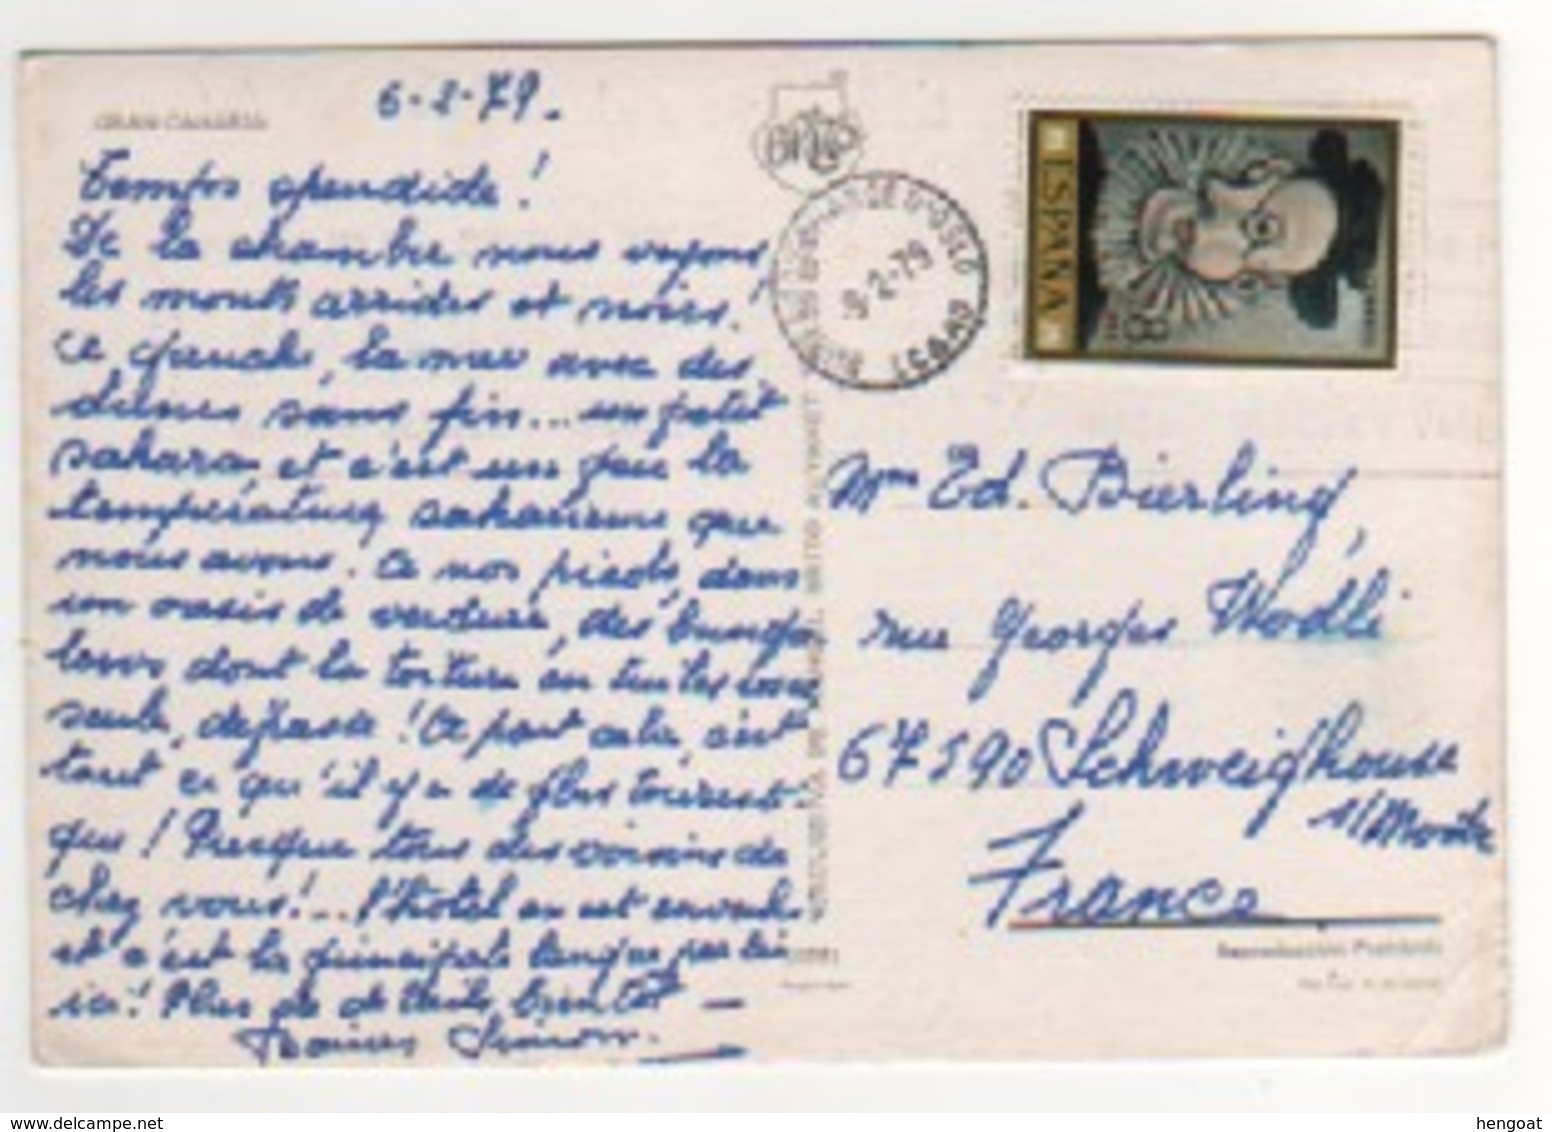 GRAN CANARIA
6-2-79.
Temps spendide!
De la chambre nous voyons
les monts arrides et noirs!
la mer avec des
dunes sans fin... un petit
sahara, et c'est un peu la
température saharienne que
nous avons. A nos pieds, dans
un oasis de verdure, des bunga
lows dont la toiture en tuiles
seule, dépasse! A part cela, c'est
tout ce qu'il y a de plus touristi
que! Presque tous des voisins de
chez vous!... l'hôtel en est
et c'est la principale langue
ici! Plus de détails, bientôt —
Simon.
9-2-79
ESPAÑA
8
Mme Ed. Bierling,
rue Georges Wodli
67590 Schweighouse
s/Moder
France
hengoat